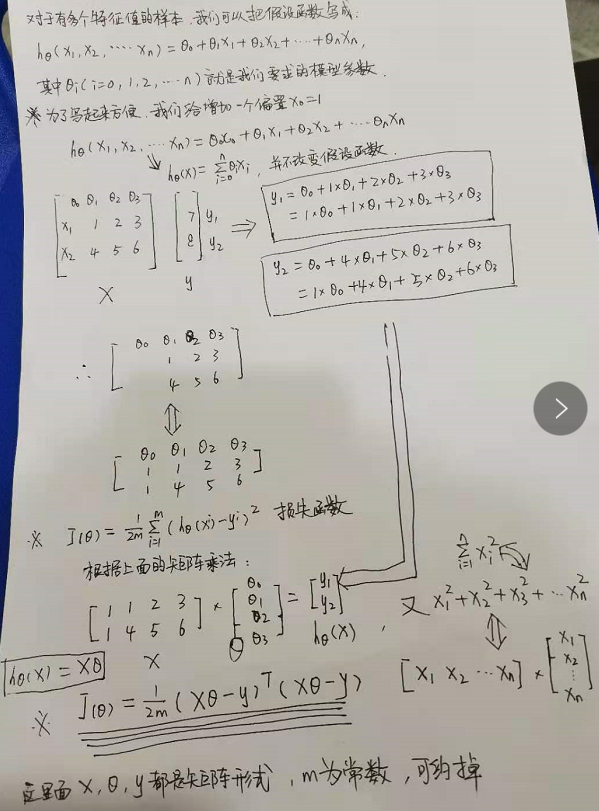 对于有多个特征值的样本,我们可以把假设函数写成:
hθ(x₁,x₂,…xₙ) = θ₀+θ₁x₁+θ₂x₂+…+θₙxₙ,
其中θi(i=0,1,2,…n)就是我们要求的模型参数.
※为了写起来方便,我们给增加一个偏置x₀=1
hθ(x₁,x₂,…xₙ) = θ₀x₀+θ₁x₁+θ₂x₂+…θₙxₙ
↘ hθ(x) = Σ(i=0→n) θixi, 并不改变假设函数.
[θ₀ θ₁ θ₂ θ₃
x₁ 1 2 3
x₂ 4 5 6]
X
[7
8] y₁ y₂
y
⇒
y₁ = θ₀+1×θ₁+2×θ₂+3×θ₃
= 1×θ₀+1×θ₁+2×θ₂+3×θ₃
y₂ = θ₀+4×θ₁+5×θ₂+6×θ₃
= 1×θ₀+4×θ₁+5×θ₂+6×θ₃
∴ [θ₀ θ₁ θ₂ θ₃
1 2 3
4 5 6]
⇕
[θ₀ θ₁ θ₂ θ₃
1 1 2 3
1 4 5 6]
※ J(θ) = 1/2m Σ(i=1→m) (hθ(xi)-yi)² 损失函数
根据上面的矩阵乘法:
[1 1 2 3
1 4 5 6] × [θ₀
θ₁
θ₂
θ₃] = [y₁
y₂]
X θ hθ(x),
hθ(x) = Xθ
※ J(θ) = 1/2m (Xθ-y)ᵀ(Xθ-y)
Σ(i=1→n) xi²
又 x₁²+x₂²+x₃²+…xₙ²
⇕
[x₁ x₂ …xₙ] × [x₁
x₂
⋮
xₙ]
这里面X,θ,y都是矩阵形式,m为常数,可约掉